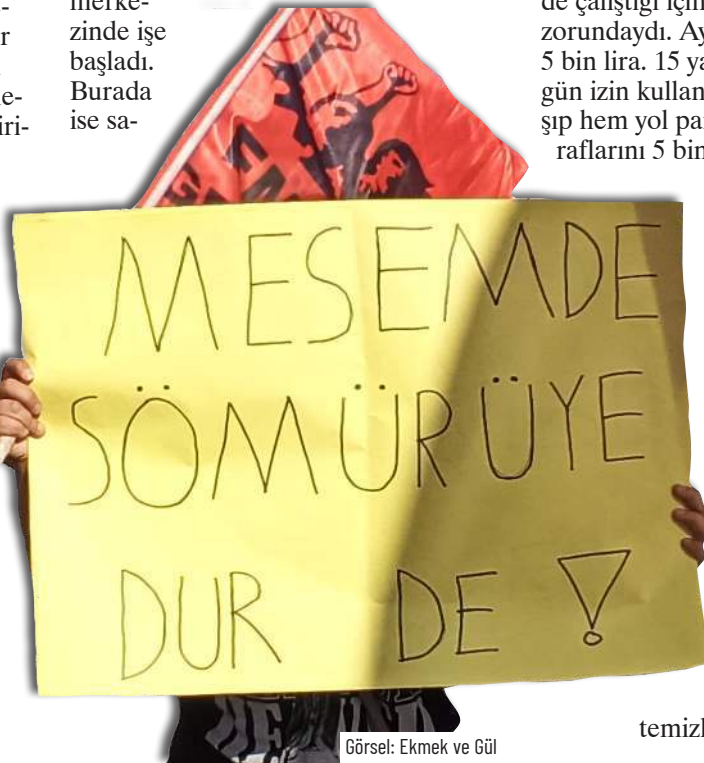 merke-
zinde işe
başladı.
Burada
ise sa-
de çalıştığı için
zorundaydı. Ay
5 bin lira. 15 ya
gün izin kullan
şıp hem yol par
raflarını 5 bin
MESEMDE
SÖMÜRÜYE
DUR DE!
Görsel: Ekmek ve Gül
temizl